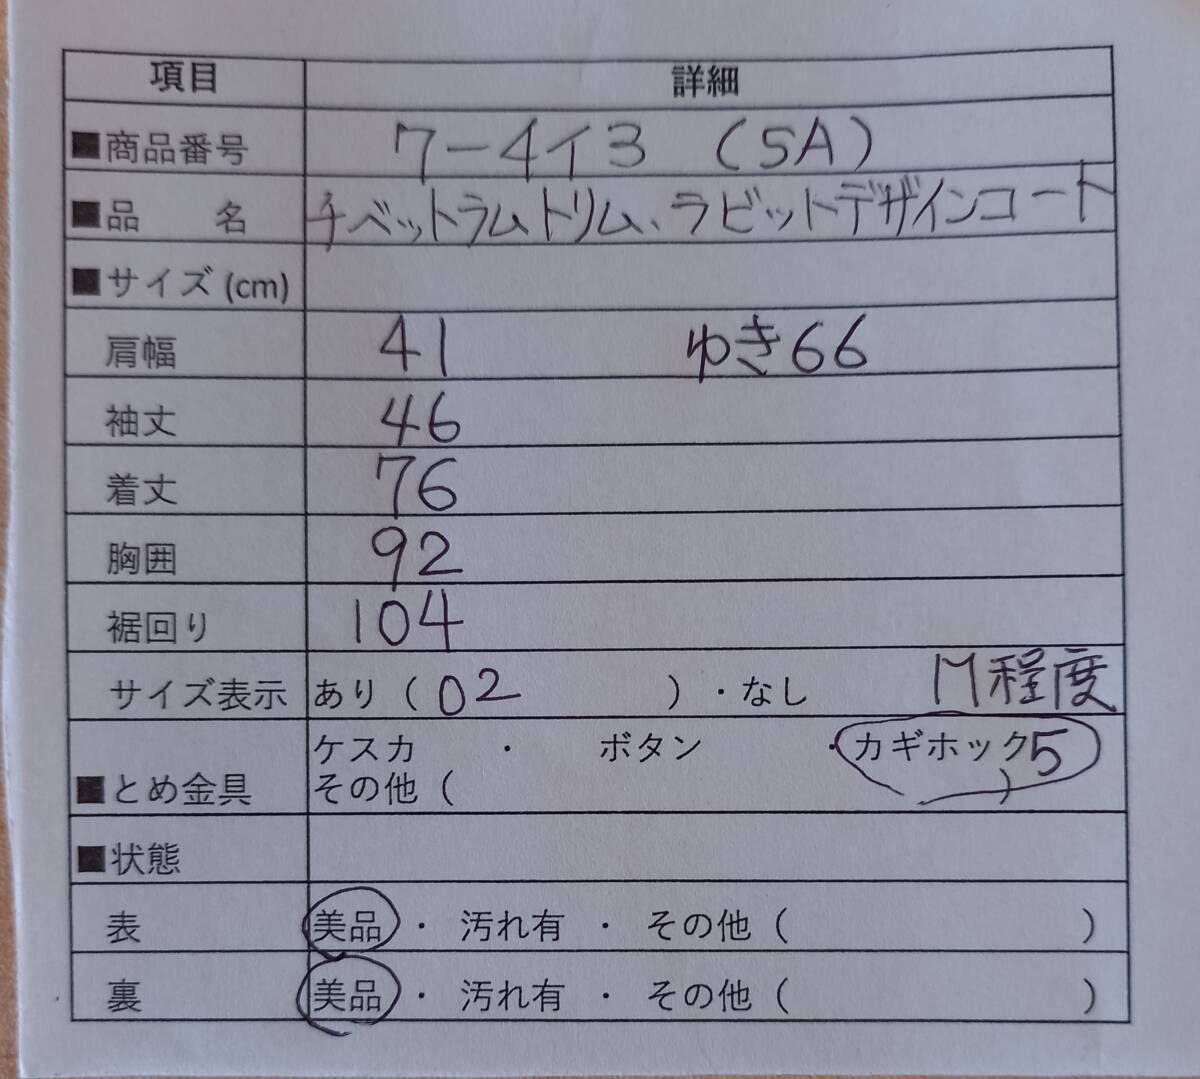 項目 詳細
■商品番号 7-4イ3 (SA)
■品　名 チベットラムトリム、ラビットデザインコート
■サイズ(cm)
肩幅 41 ゆき66
袖丈 46
着丈 76
胸囲 92
裾回り 104
サイズ表示 あり（02 ）・なし M程度
ケスカ ・ ボタン ・カギホック5
■とめ金具 その他（ ）
■状態
表 美品・ 汚れ有 ・ その他（ ）
裏 美品・ 汚れ有 ・ その他（ ）